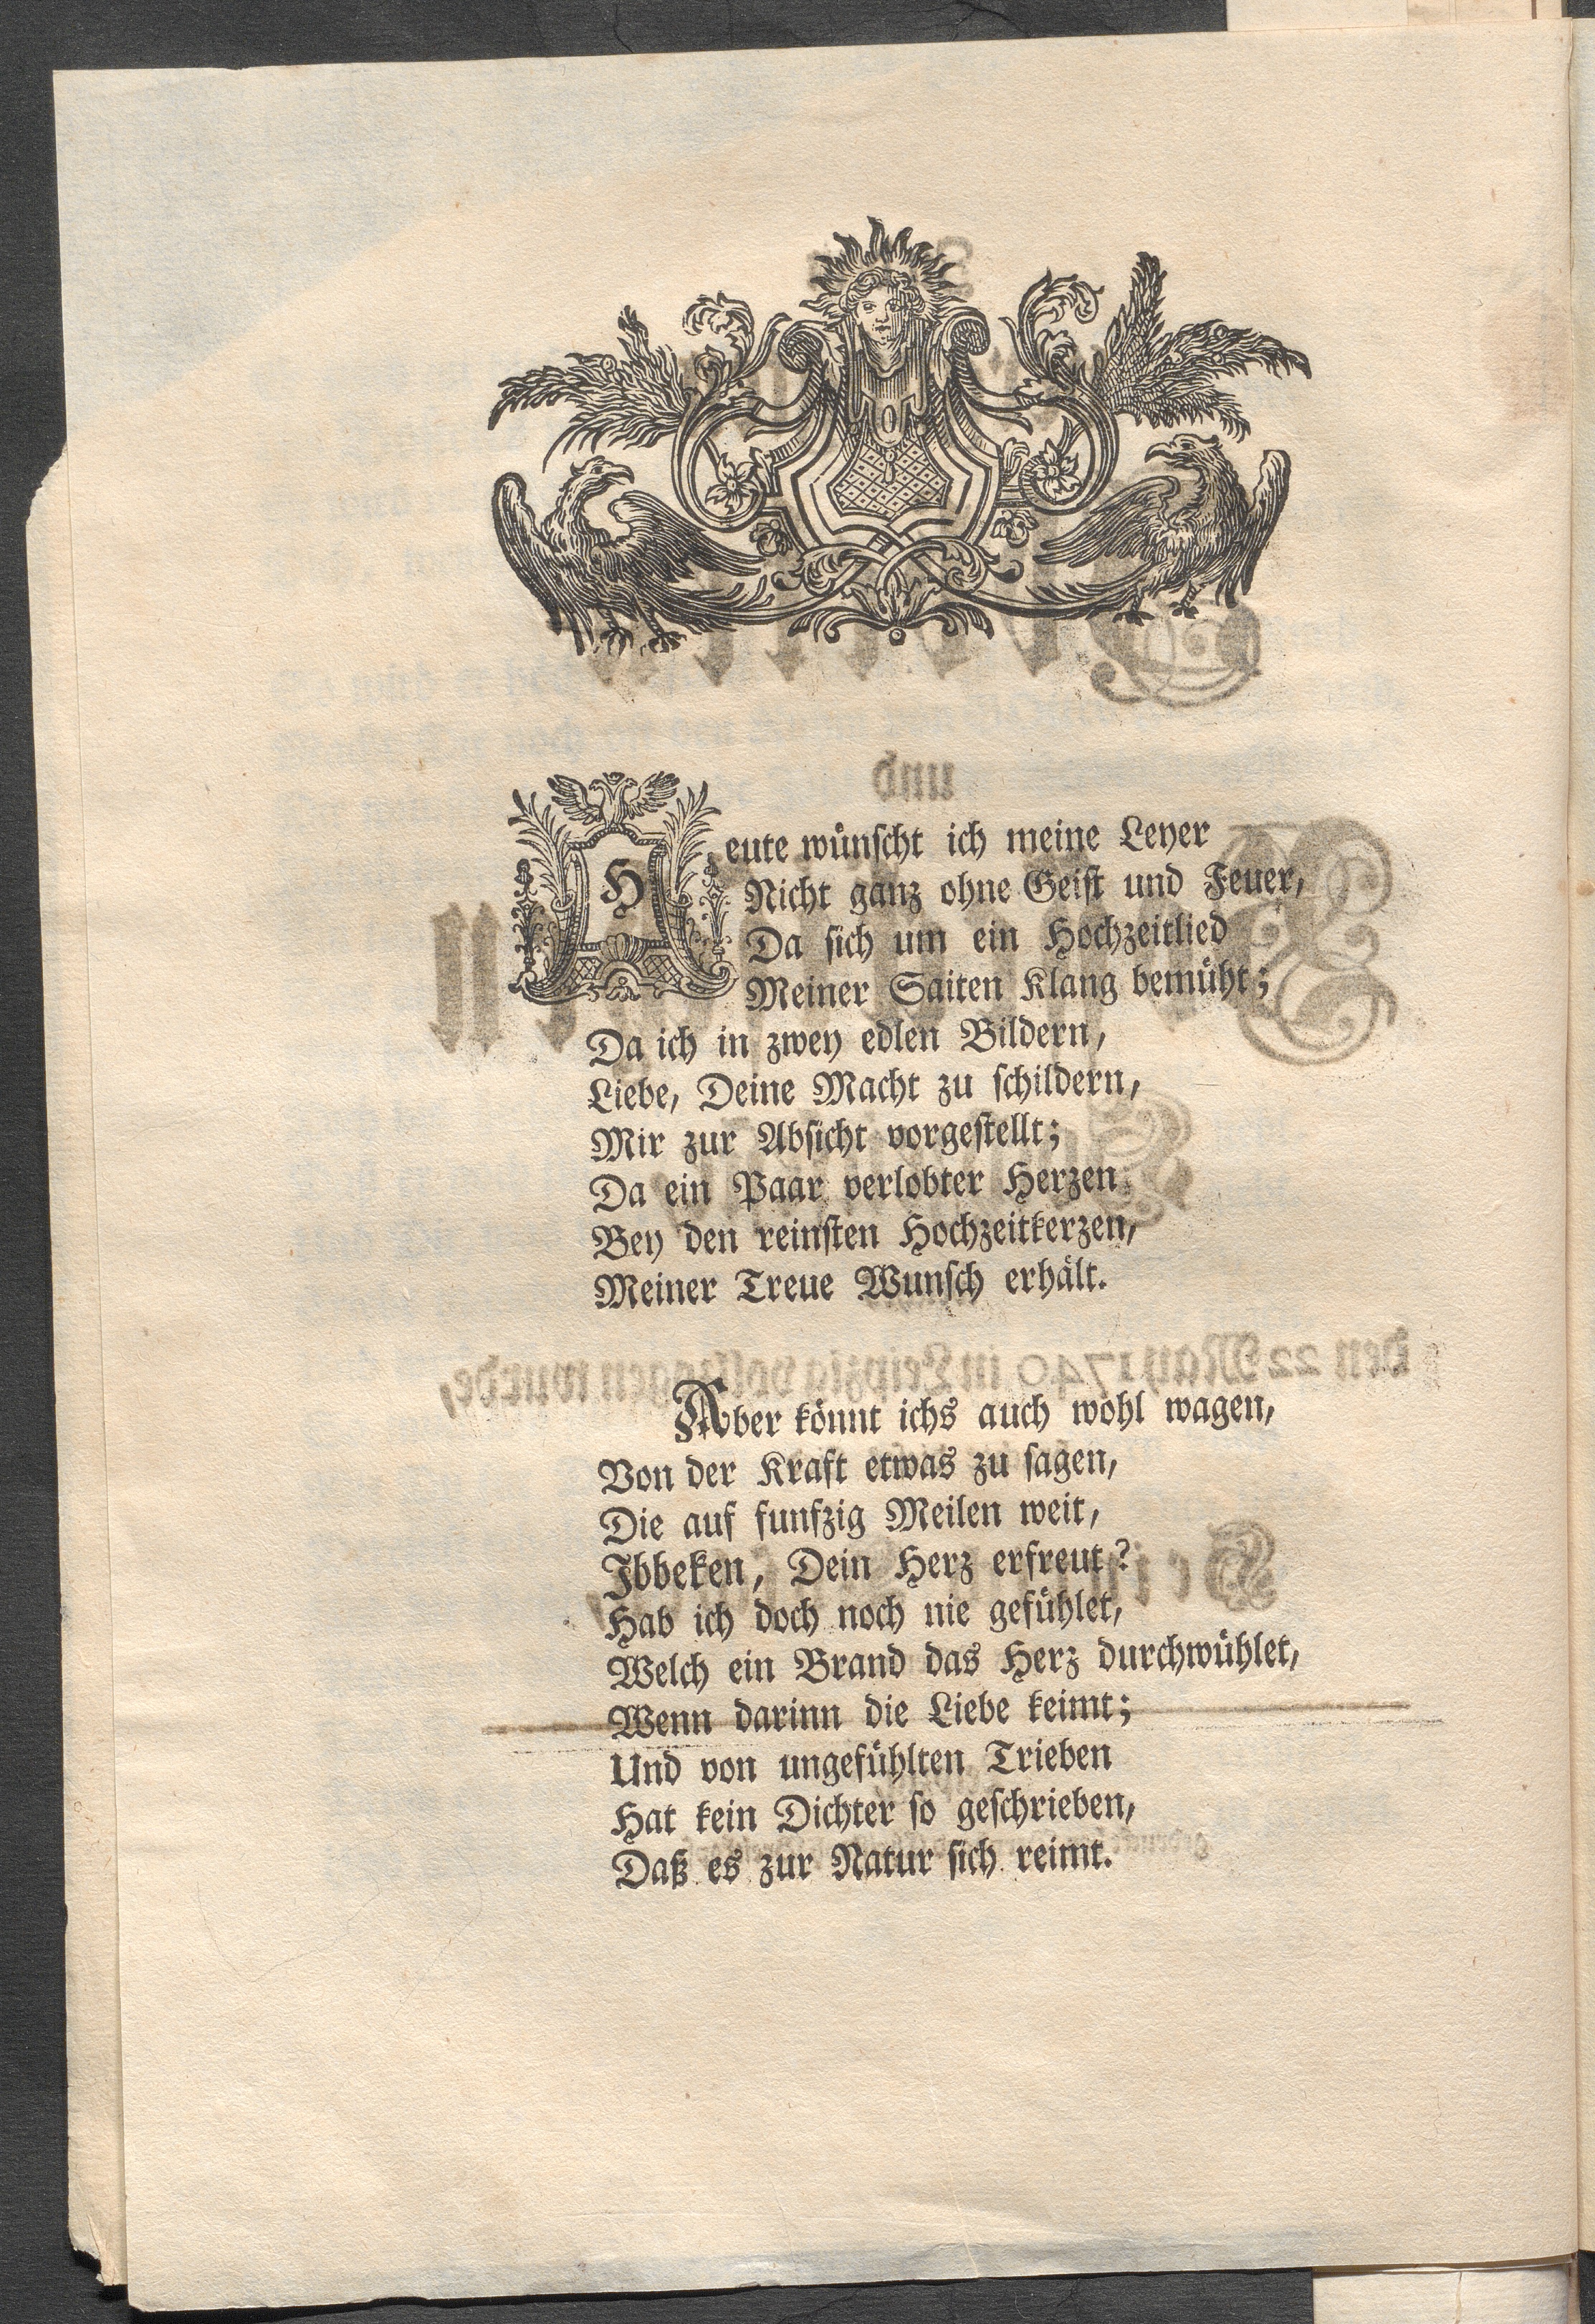 Heute wünscht ich meine Leyer
Nicht ganz ohne Geist und Feuer,
Da sich um ein Hochzeitlied
Meiner Saiten Klang bemüht;
Da ich in zwey edlen Bildern,
Liebe, Deine Macht zu schildern,
Mir zur Absicht vorgestellt;
Da ein Paar verlobter Herzen
Bey den reinsten Hochzeitkerzen,
Meiner Treue Wunsch erhält.
Aber könnt ichs auch wohl wagen,
Von der Kraft etwas zu sagen,
Die auf funfzig Meilen weit,
Ibbeken, Dein Herz erfreut?
Hab ich doch noch nie gefühlet,
Welch ein Brand das Herz durchwühlet,
Wenn darinn die Liebe keimt;
Und von ungefühlten Trieben
Hat kein Dichter so geschrieben,
Daß es zur Natur sich reimt.